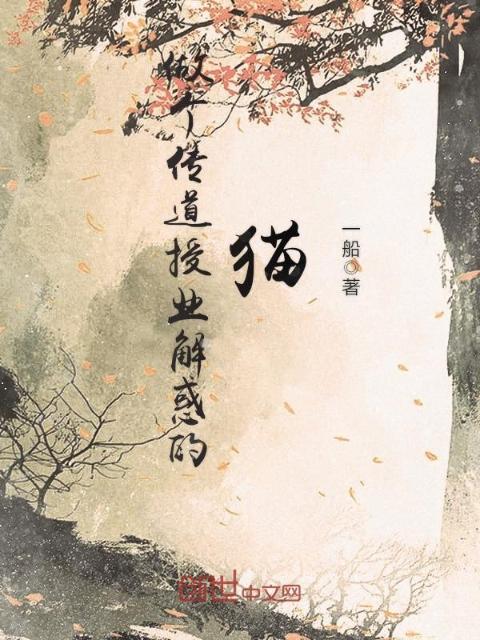 做个传道授业解惑的
猫
一船◎著
创世中文网